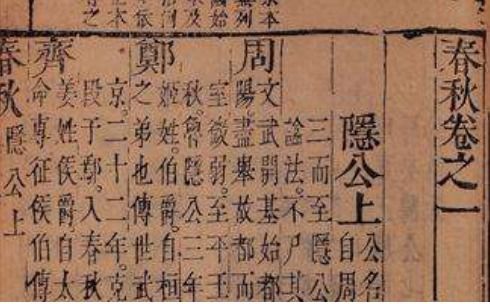 春秋卷之一
隱公上 公名
自周
三而至隱公
諡法。不尸其
周 文武開基始都
陽。盡舉故都而
室微弱。至平王
秋。魯隱公三年
鄭 姬姓。伯爵。自桓
之弟也傳世武
京。二十二年。克
段于鄢。入春秋
齊 姜姓侯爵。自太
命專征侯伯傳
春秋 隱公上